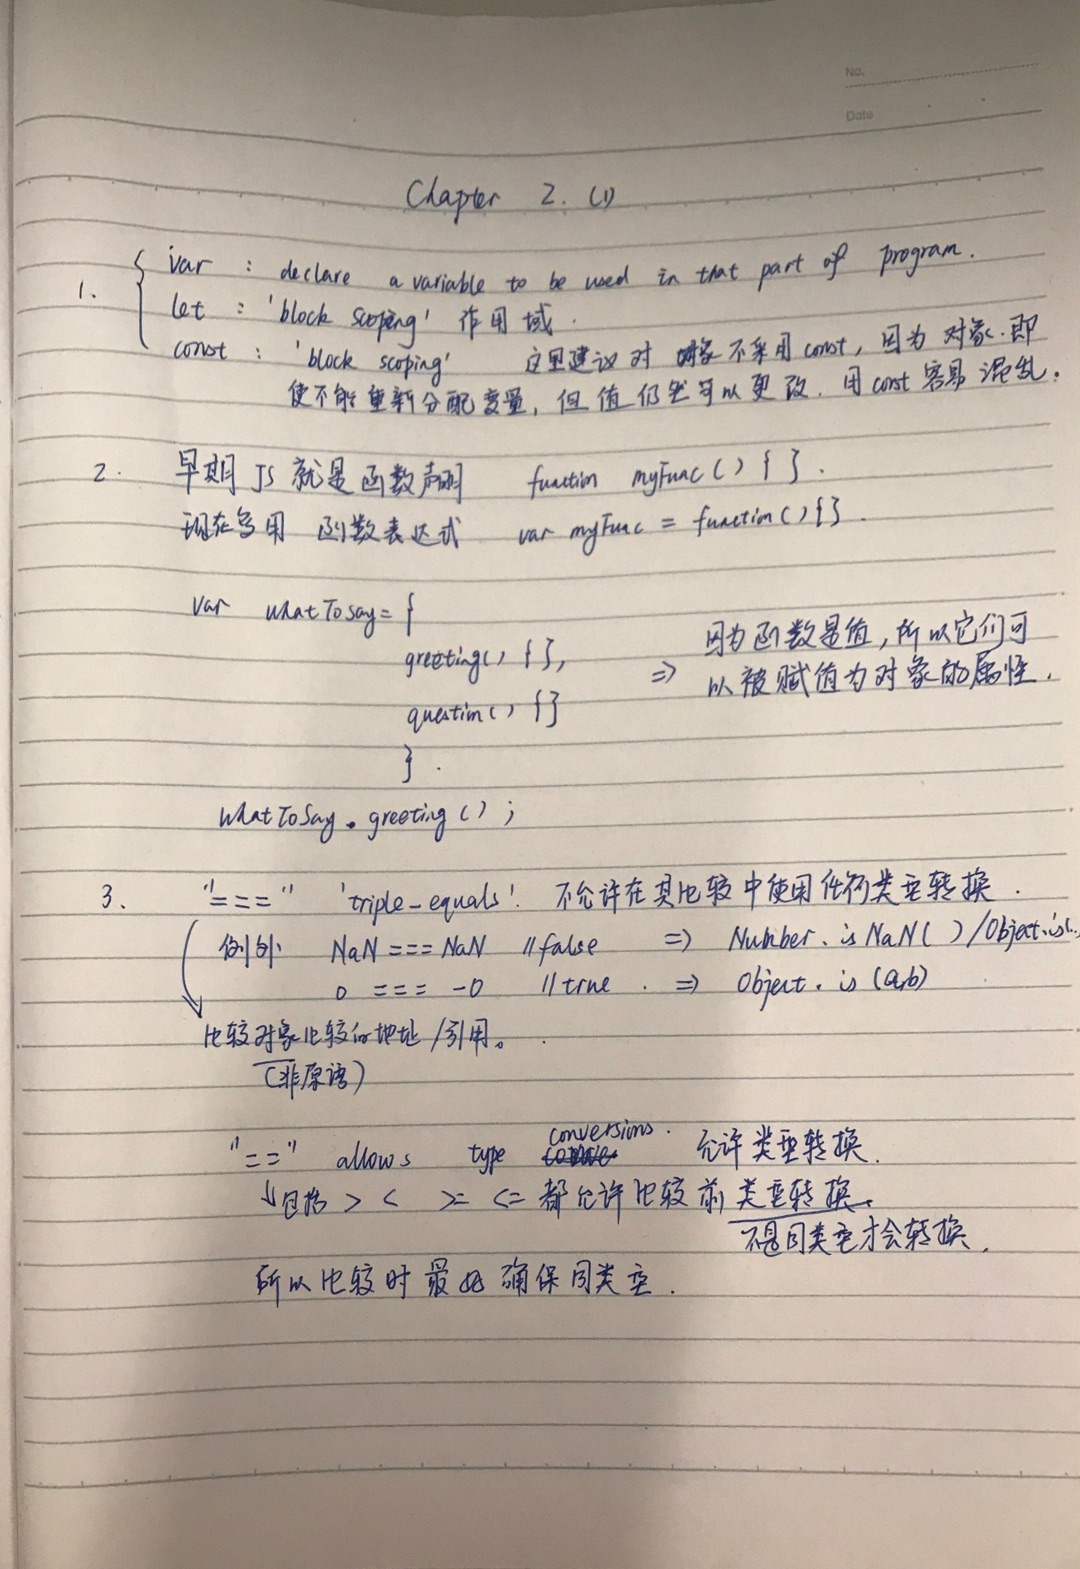 No.
Date
Chapter 2. (1)
1. { var : declare a variable to be used in that part of program.
let : 'block scoping' 作用域.
const : 'block scoping' 这里建议对对象不采用const, 因为对象. 即
使不能重新分配变量, 但值仍然可以更改. 用const容易混乱.
2. 早期JS就是函数声明 function myFunc() { }.
现在多用 函数表达式 var myFunc = function(){}.
var whatToSay= {
greeting() { },
question() {}
}.
=> 因为函数是值, 所以它们可
以被赋值为对象的属性.
whatToSay.greeting();
3. "===" 'triple-equals'. 不允许在其比较中使用任何类型转换.
例外 NaN === NaN //false => Number.isNaN( ) /Object.is(..
0 === -0 //true. => Object.is(a,b)
比较对象比较的地址/引用。
(非原语)
"==" allows type conversions. 允许类型转换.
↓包括 > < >= <= 都允许比较前类型转换.
不是同类型才会转换.
所以比较时最好确保同类型.